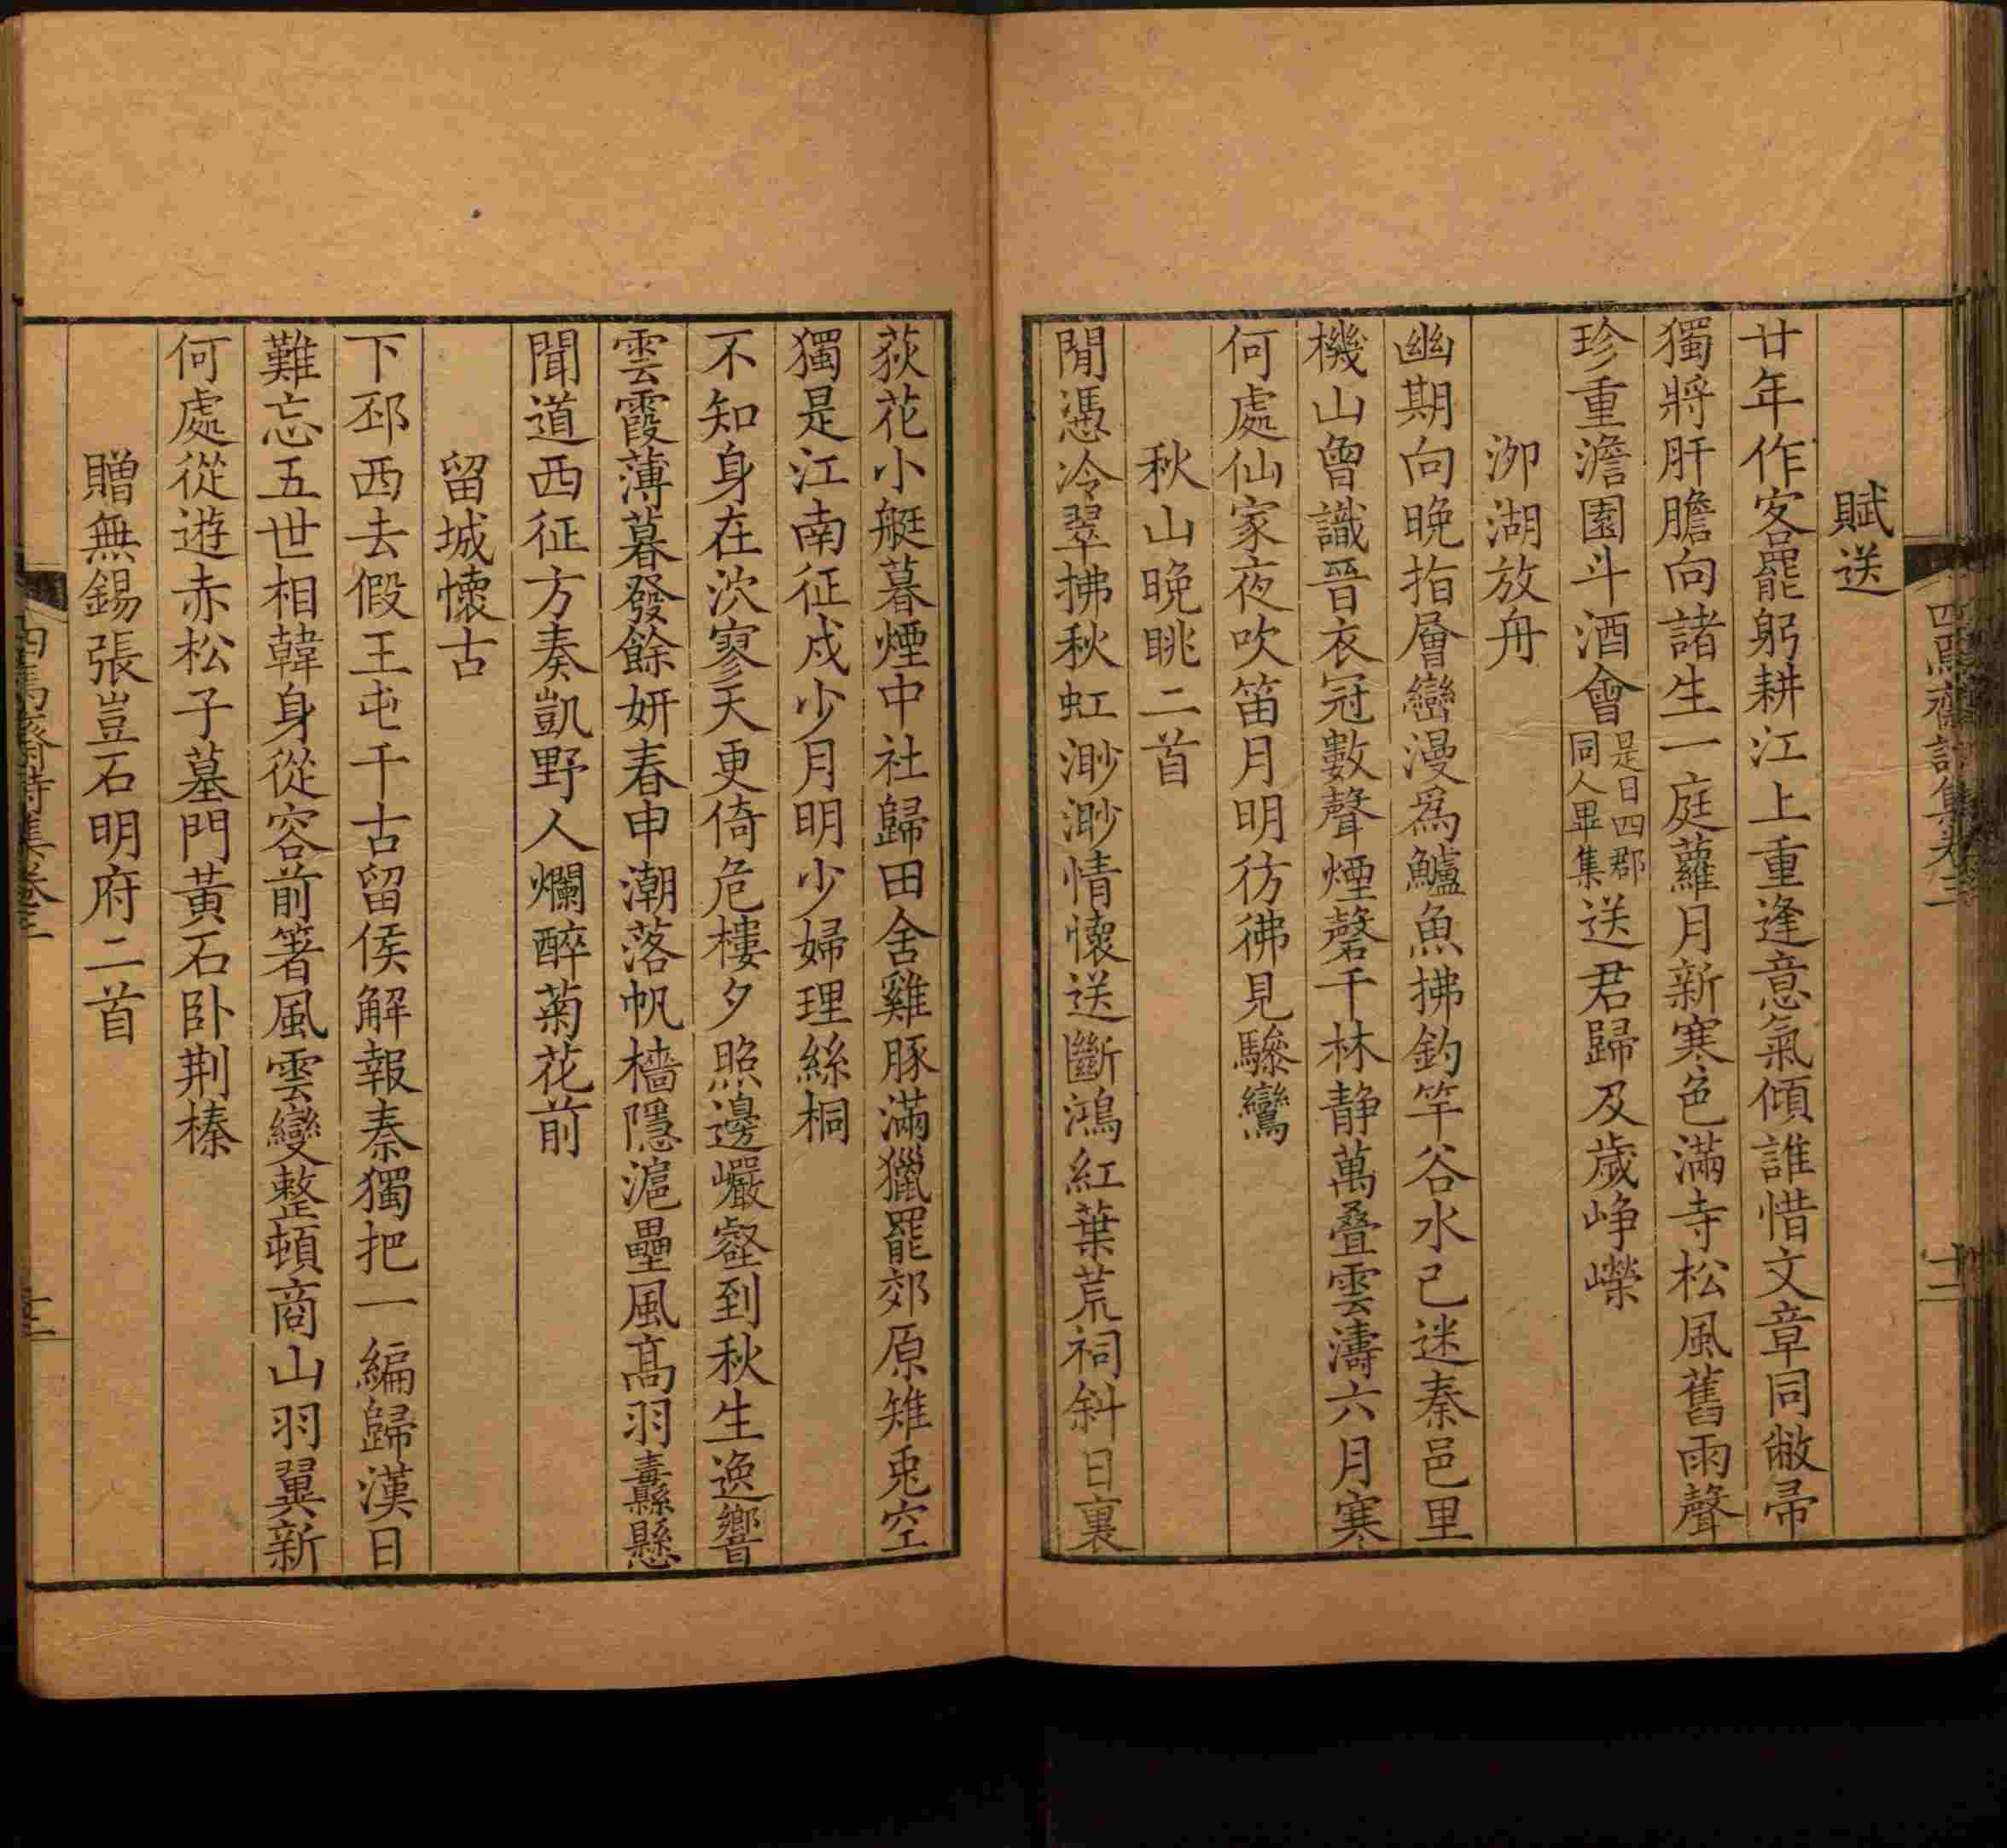 賦送
廿年作客罷躬耕江上重逢意氣傾誰惜文章同敝帚
獨將肝膽向諸生一庭蘿月新寒色滿寺松風舊雨聲
珍重澹園斗酒會是日四郡同人畢集送君歸及歲崢嶸
泖湖放舟
幽期向晚指層巒漫爲鱸魚拂釣竿谷水已迷秦邑里
機山曾識晉衣冠數聲煙磬千林静萬疊雲濤六月寒
何處仙家夜吹笛月明彷彿見驂鸞
秋山晚眺二首
閒憑冷翠拂秋虹渺渺情懷送斷鴻紅葉荒祠斜日裏
荻花小艇暮煙中社歸田舍雞豚滿獵罷郊原雉兎空
獨是江南征戍少月明少婦理絲桐
不知身在泬寥天更倚危樓夕照邊巖壑到秋生逸響
雲霞薄暮發餘妍春申潮落帆檣隱滬壘風髙羽纛懸
聞道西征方奏凱野人爛醉菊花前
留城懷古
下邳西去假王屯千古留侯解報秦獨把一編歸漢日
難忘五世相韓身從容前箸風雲變整頓商山羽翼新
何處從遊赤松子墓門黃石卧荆榛
贈無錫張豈石明府二首